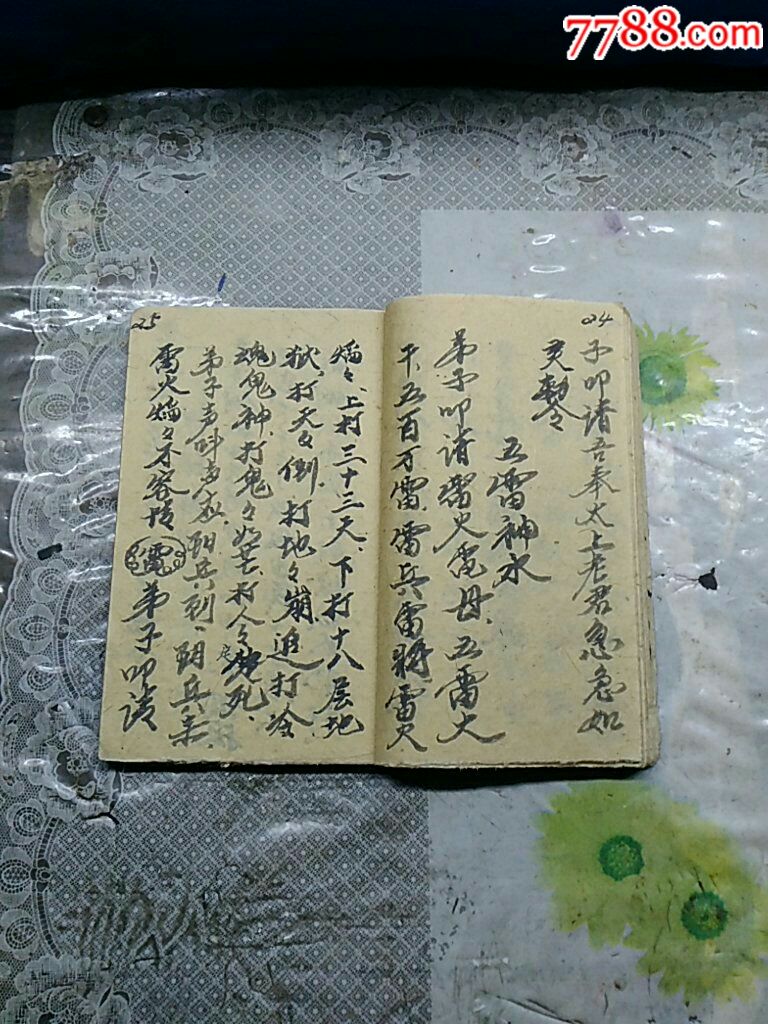 7788.com
24
子叩请吾奉太上老君急急如
五雷神水
弟子叩请雷火电母五雷火
千五百万雷雷兵雷将雷火
25
焰々、上打三十三天、下打十八层地
狱打天々倒、打地々崩追打冷
魂鬼神、打鬼々如芒、打人々死、
弟子声叫声应、阴兵到、阴兵来、
雷火焰々不容情 弟子叩请